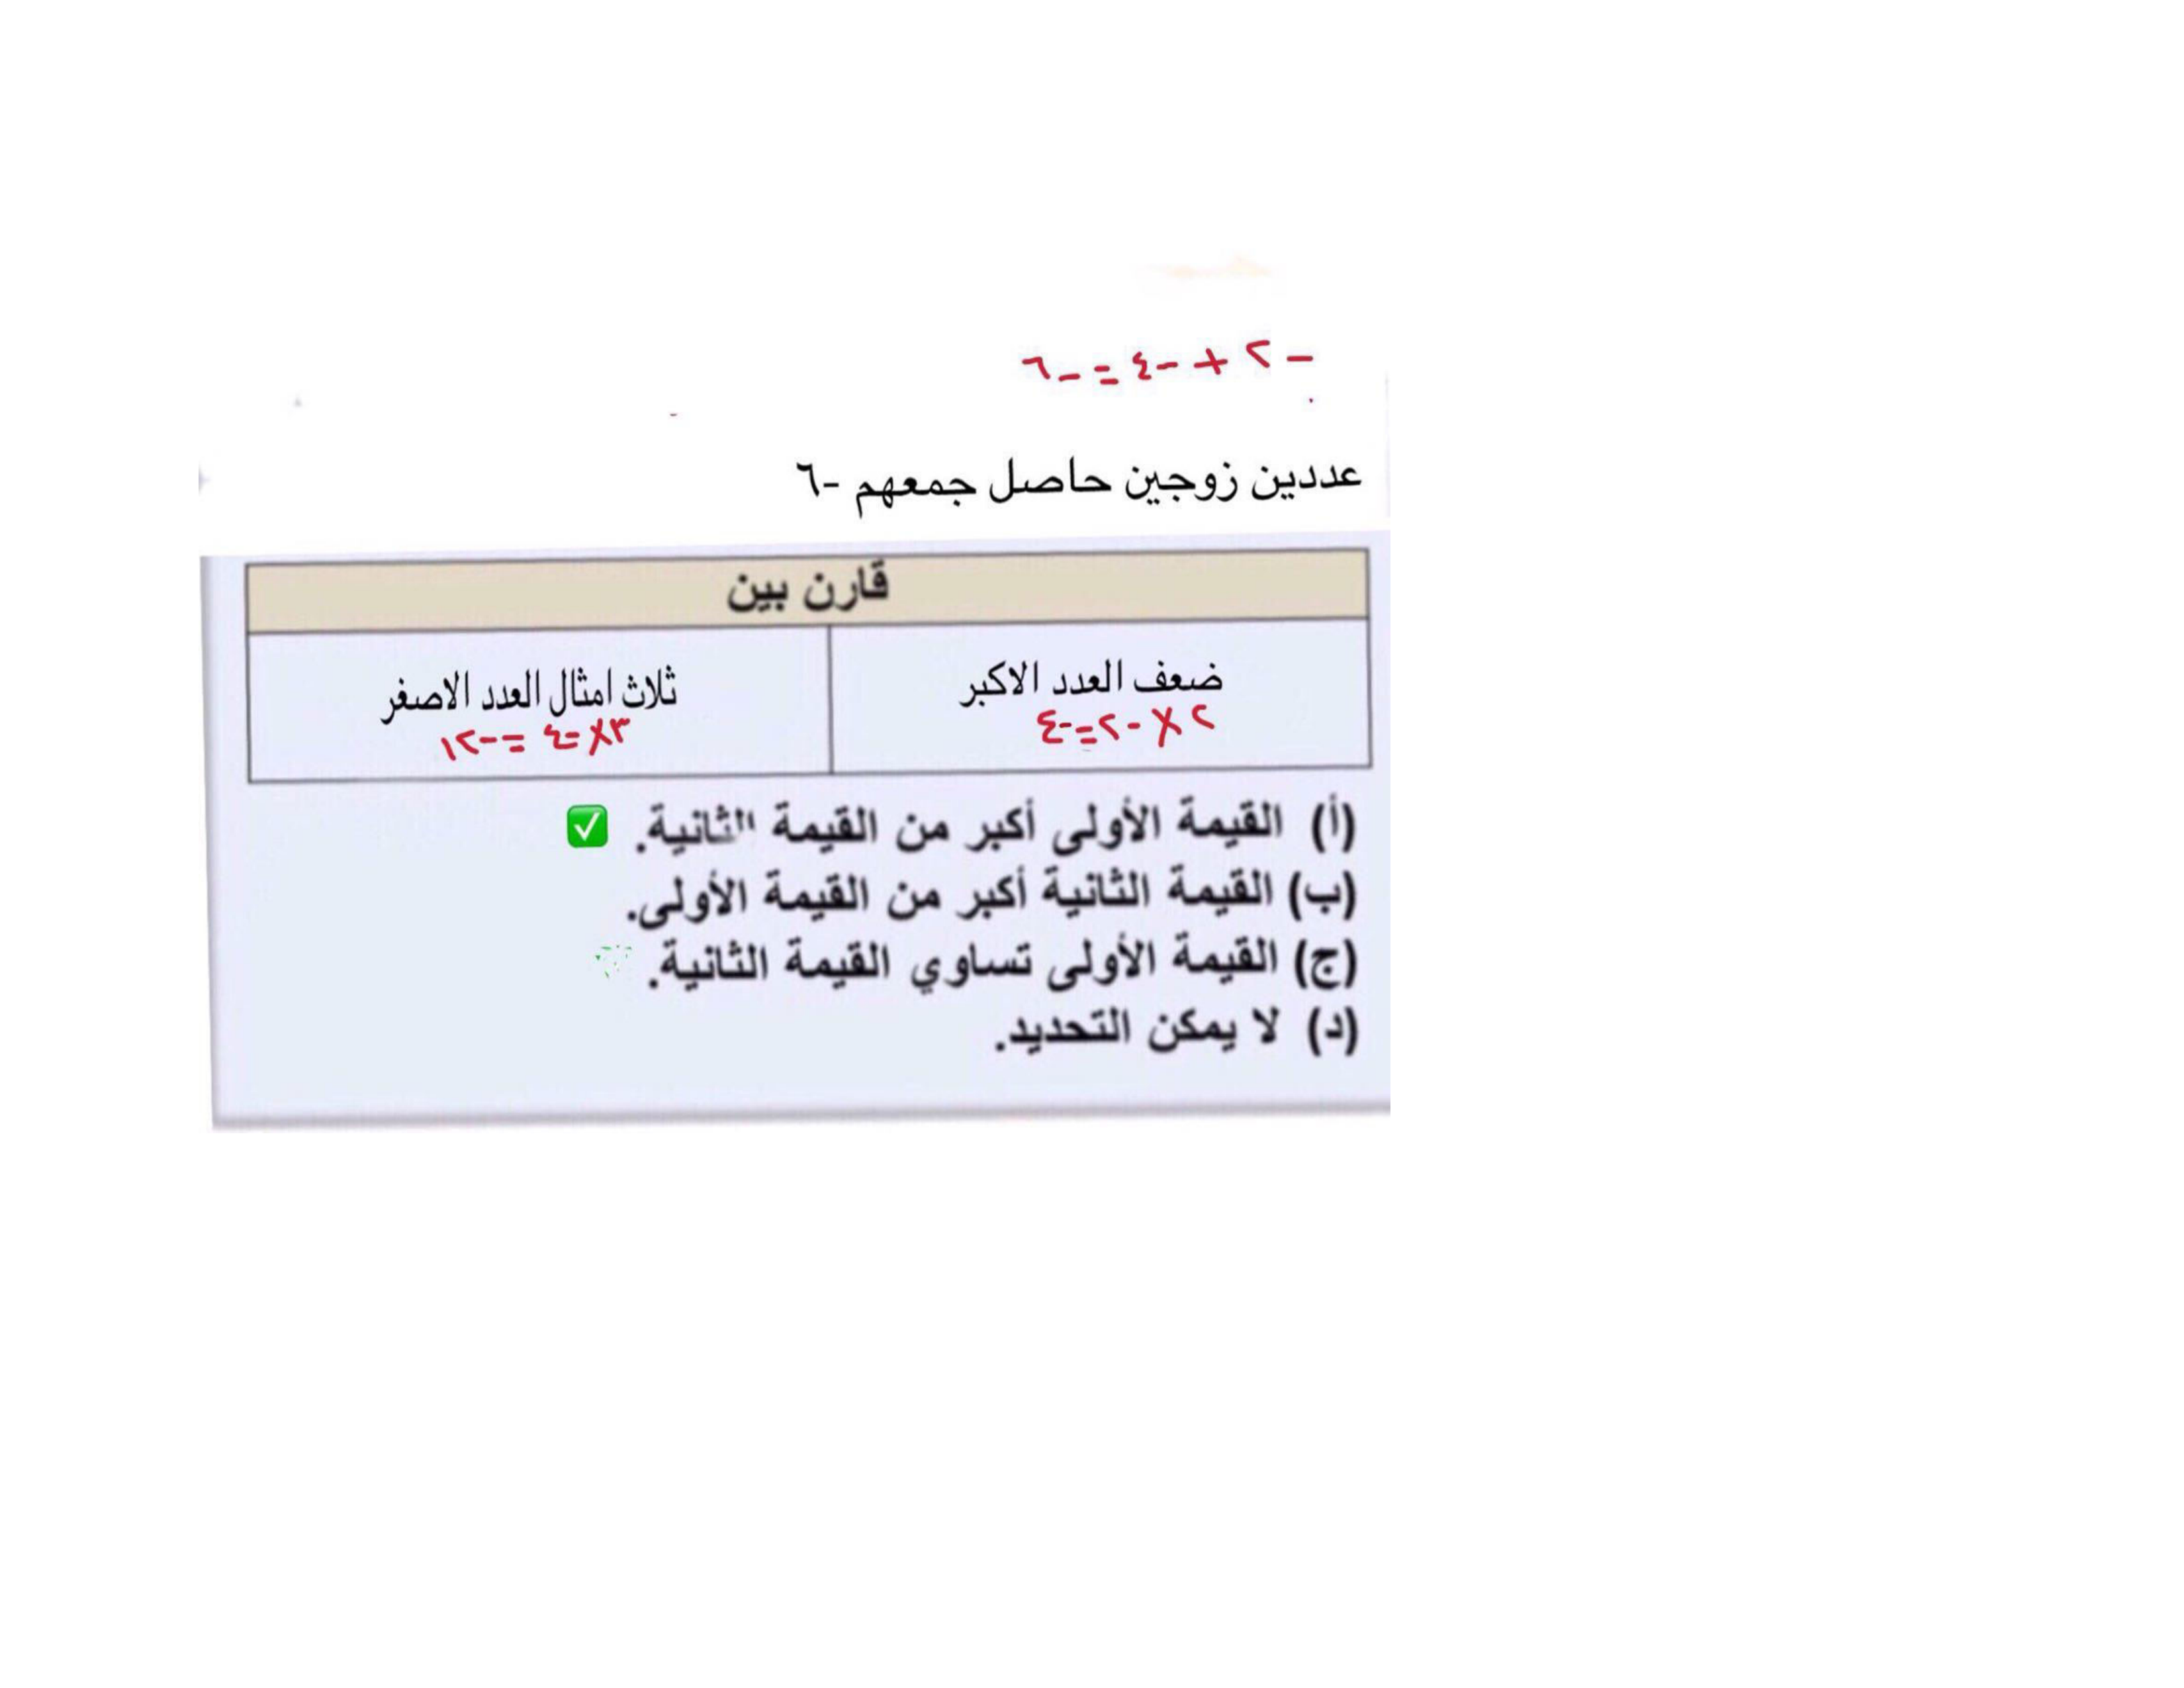 -٢ + -٤ = -٦
عددين زوجين حاصل جمعهم -٦
قارن بين
ضعف العدد الاكبر
٢ × -٢ = -٤
ثلاث امثال العدد الاصغر
٣× -٤ = -١٢
(أ) القيمة الأولى أكبر من القيمة الثانية. ✅
(ب) القيمة الثانية أكبر من القيمة الأولى.
(ج) القيمة الأولى تساوي القيمة الثانية.
(د) لا يمكن التحديد.